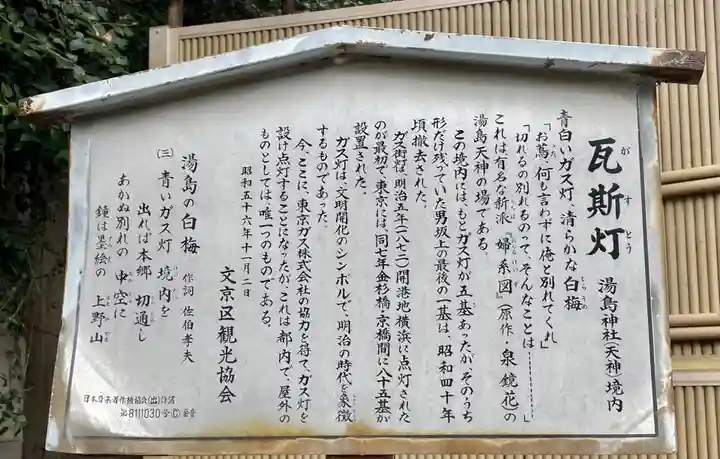 瓦斯灯
がすとう
湯島神社(天神)境内
青白いガス灯、清らかな白梅
しらうめ
「お蔦、何も言わずに俺と別れてくれ」
つた
「切れるの別れるのって、そんなことは………………」
これは有名な新派『婦系図』(原作・泉鏡花)の
湯島天神の場である。
この境内には、もとガス灯が五基あったが、そのうち
形だけ残っていた男坂上の最後の一基は、昭和四十年
頃撤去された。
ガス街灯は、明治五年(一八七二)開港地横浜に点灯された
のが最初で、東京には、同七年金杉橋・京橋間に八十五基が
設置された。
ガス灯は、文明開化のシンボルで、明治の時代を象徴
するものであった。
今、ここに、東京ガス株式会社の協力を得て、ガス灯を
設け点灯することになったが、これは都内で、屋外の
ものとしては、唯一つのものである。
昭和五十六年十一月二日
文京区観光協会
湯島の白梅 作詞 佐伯孝夫
(三) 青いガス灯 境内を
出れば本郷 切通し
あかぬ別れの 中空に
鐘は墨絵の 上野山
日本音楽著作権協会(出)許諾
第8111030号